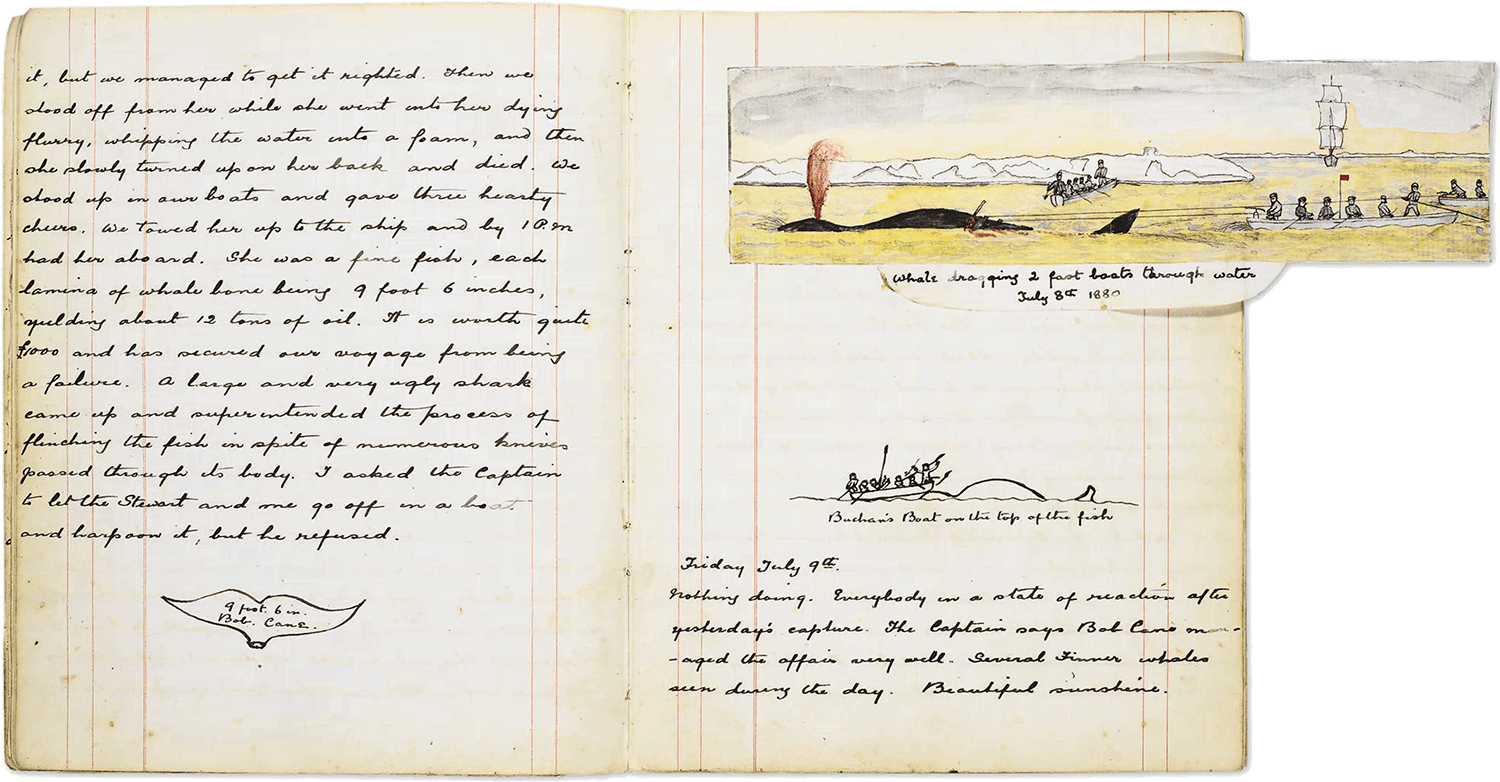 it, but we managed to get it righted. Then we
stood off from her while she went into her dying
flurry, whipping the water into a foam, and then
she slowly turned upon her back and died. We
stood up in our boats and gave three hearty
cheers. We towed her up to the ship and by 1 P.m
had her aboard. She was a fine fish, each
lamina of whale bone being 9 foot 6 inches,
yielding about 12 tons of oil. It is worth quite
£1000 and has secured our voyage from being
a failure. A large and very ugly shark
came up and superintended the process of
flinching the fish in spite of numerous knives
passed through its body. I asked the Captain
to let the Stewart and me go off in a boat
and harpoon it, but he refused.
9 foot. 6 in.
Bob. Cane.
Whale dragging 2 fast boats through water
July 8th 1880
Buchan's Boat on the top of the fish
Friday July 9th.
Nothing doing. Everybody in a state of reaction after
yesterday's capture. The Captain says Bob Cane man-
-aged the affair very well. Several Finner whales
seen during the day. Beautiful sunshine.